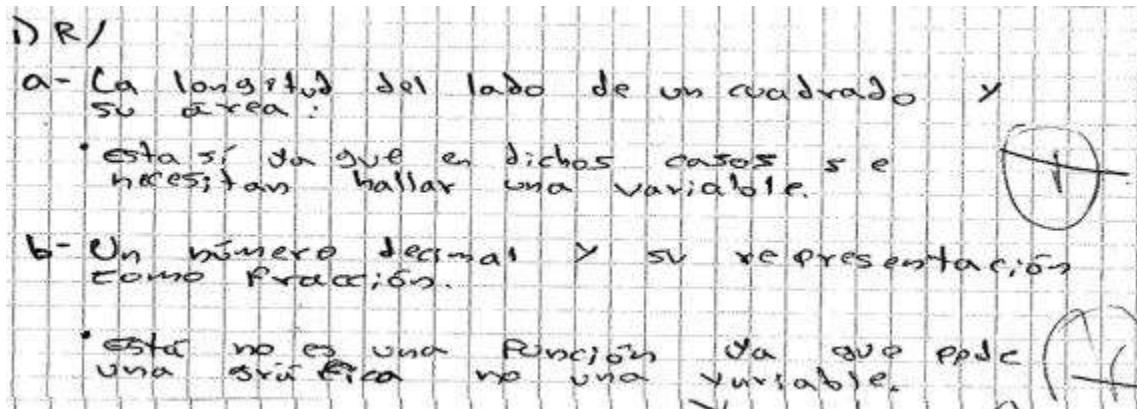 1) R/
a- La longitud del lado de un cuadrado y
su área:
• esta sí ya que en dichos casos se
necesitan hallar una variable.
1
b- Un número decimal y su representación
como fracción.
• está no es una función ya que pide
una gráfica no una variable.